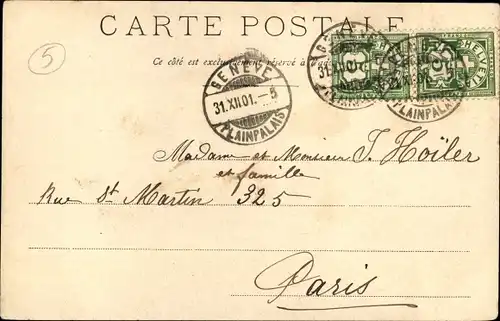 CARTE POSTALE
Ce côté est exclusivement réservé à
5
GENÈVE
31.XII.01.—5
PLAINPALAIS
GENÈVE
31.XII
PLAINPALAIS
PLAINPALAIS
HELVETIA
5
5
Madame et Monsieur J. Hoïler
et famille
Rue St Martin 325
Paris